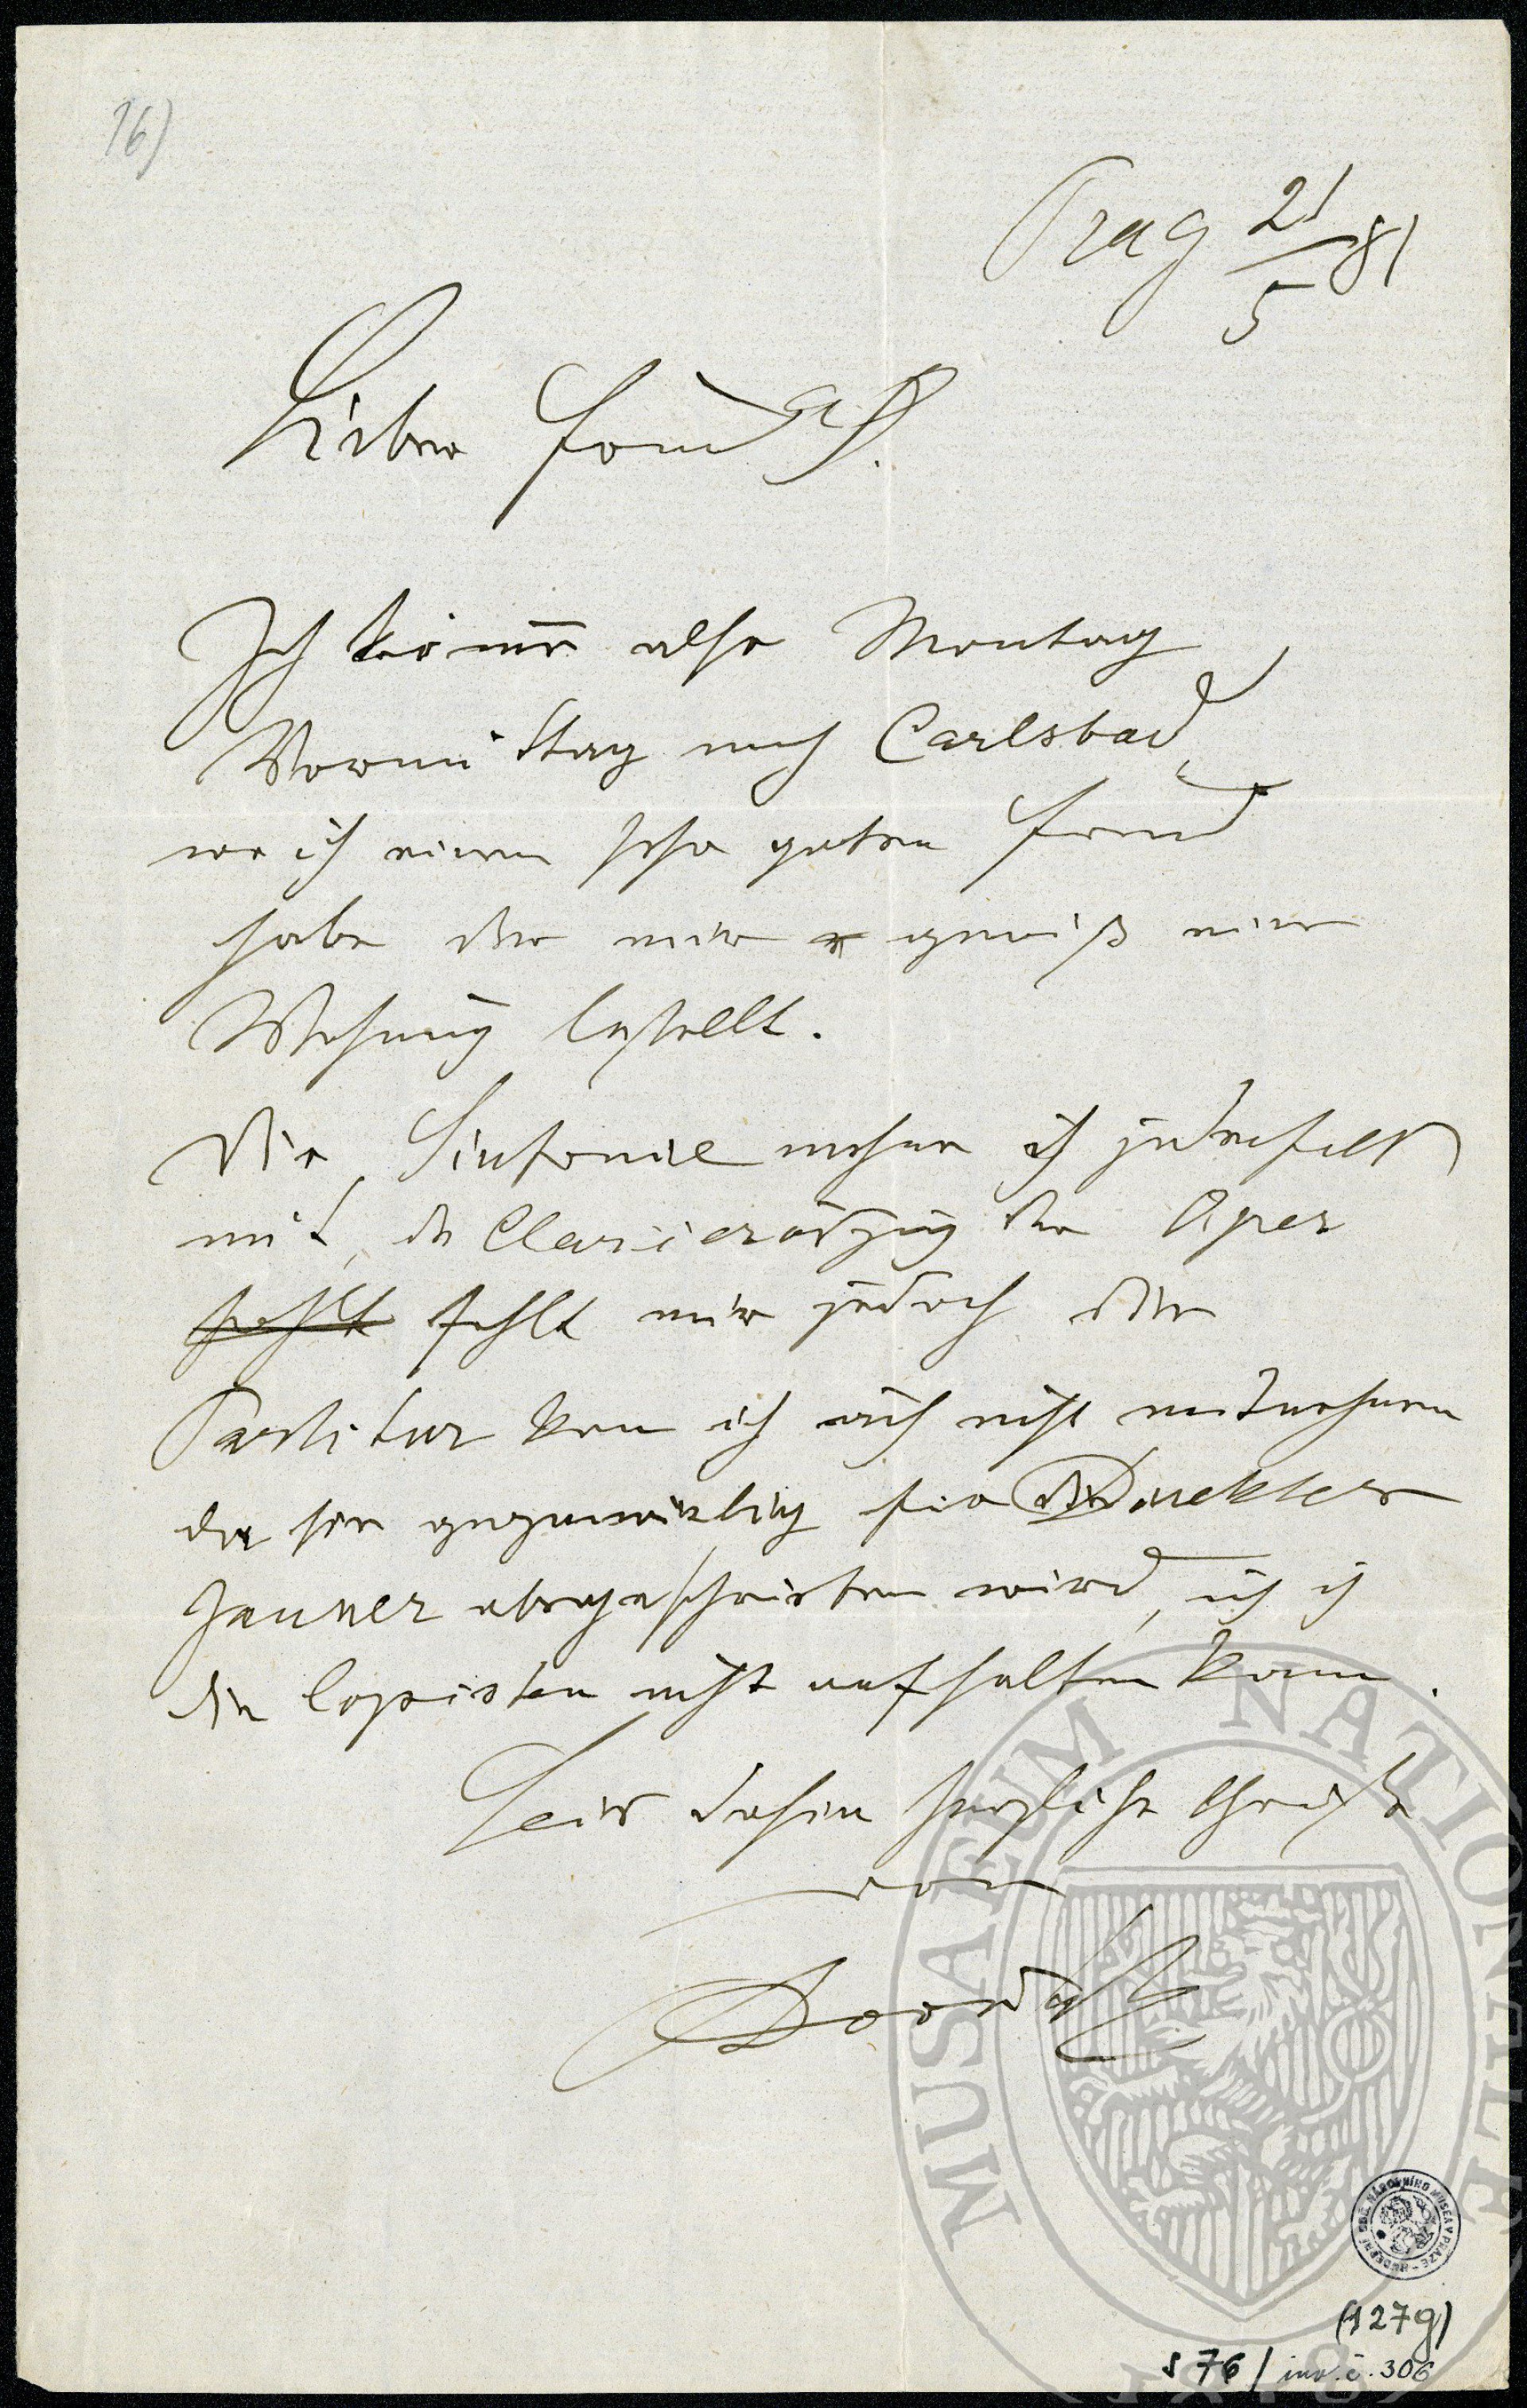 16)
Prag 21/5 81
Lieber Freund
Ich komme also Montag
Vormittag nach Carlsbad,
wo ich einen sehr guten Freund
habe der mir gewiß eine
Wohnung bestellt.
Die Sinfonie nehme ich jedenfalls
mit, der Clavierauszug der Oper
fehlt fehlt mir jedoch der
Partitur kan ich auch nicht mitnehmen
da sie gegenwärtig für Direktor
Jauner abgeschrieben wird, ich
die Copisten nicht aufhalten kann.
Seid dahin herzlichst gegrüßt
von
Dvořák
MUSAEUM NATIONALE
1818
HUDEBNÍ ODD. NÁRODNÍHO MUSEA V PRAZE
(127g)
S 76 / inv. č. 306